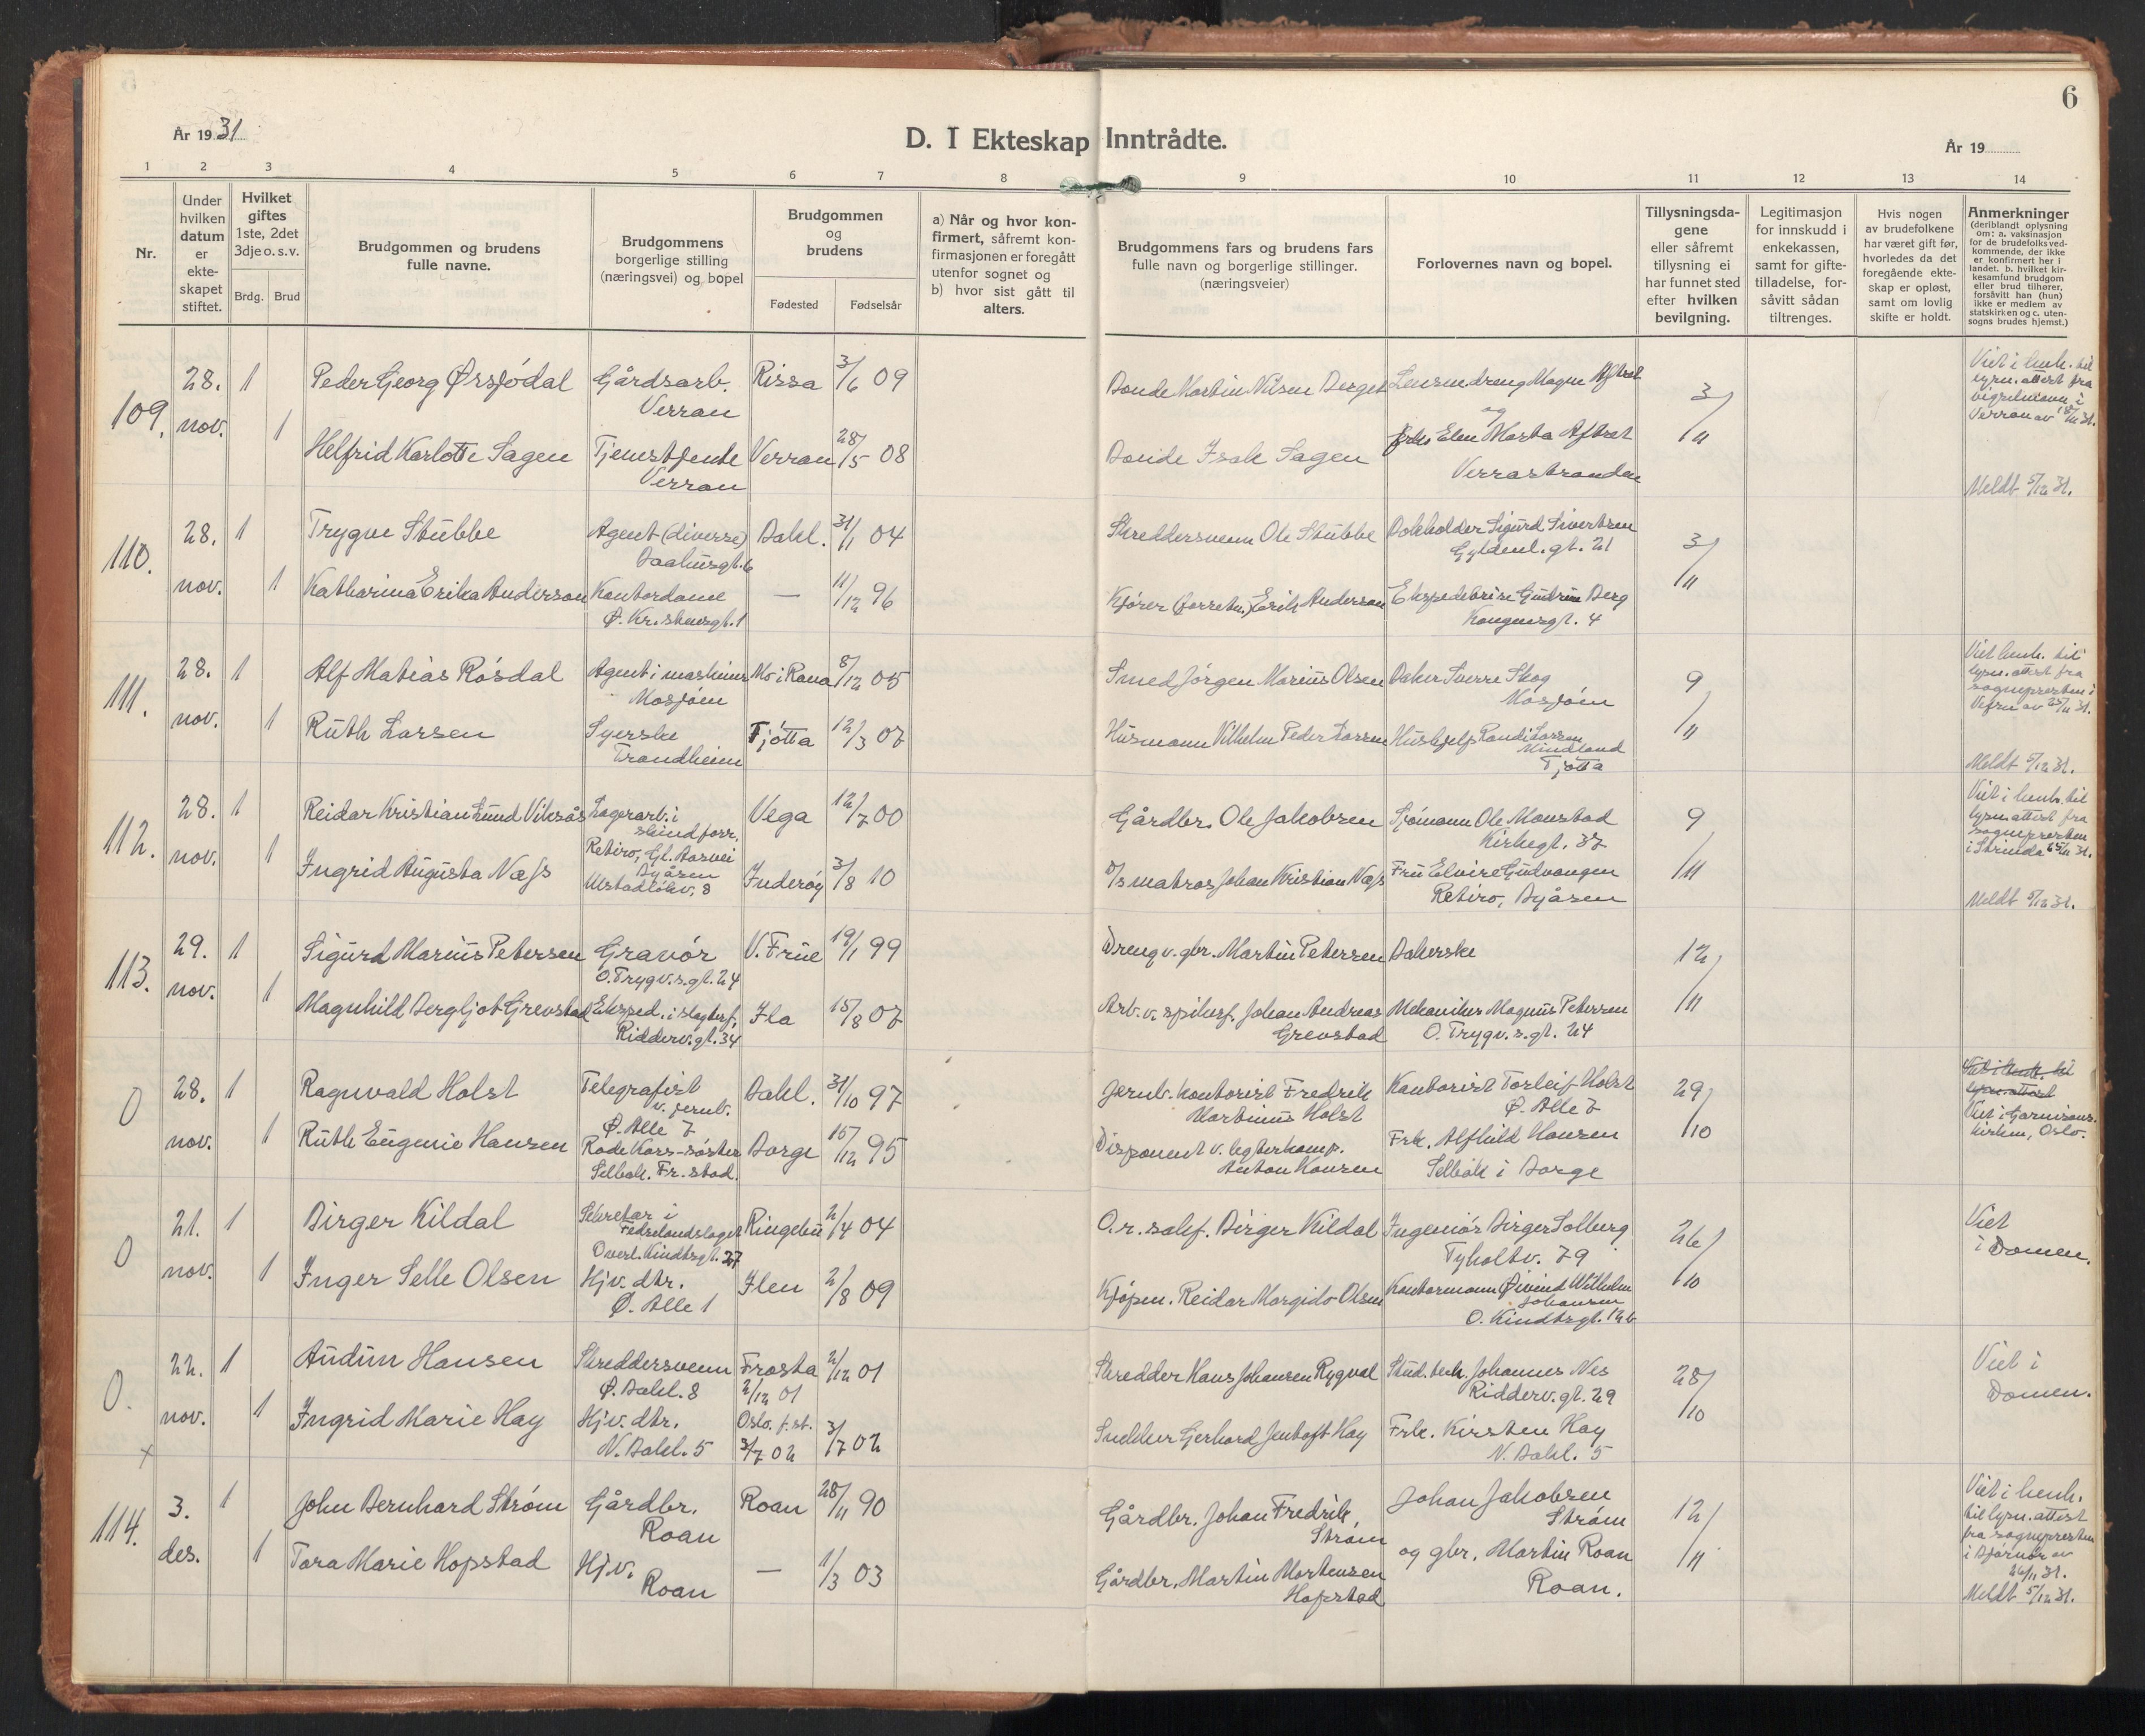 6
År 1931
D. I Ekteskap Inntrådte.
År 19
1 2 3 4 5 6 7 8 9 10 11 12 13 14
Nr.
Under hvilken datum er ekte-skapet stiftet.
Hvilket giftes 1ste, 2det 3dje o. s. v.
Brdg. Brud
Brudgommen og brudens
fulle navne.
Brudgommens
borgerlige stilling
(næringsvei) og bopel
Brudgommen
og
brudens
Fødested Fødselsår
a) Når og hvor kon-
firmert, såfremt kon-
firmasjonen er foregått
utenfor sognet og
b) hvor sist gått til
alters.
Brudgommens fars og brudens fars
fulle navn og borgerlige stillinger.
(næringsveier)
Forlovernes navn og bopel.
Tillysningsda-
gene
eller såfremt
tillysning ei
har funnet sted
efter hvilken
bevilgning.
Legitimasjon
for innskudd i
enkekassen,
samt for gifte-
tilladelse, for-
såvitt sådan
tiltrenges.
Hvis nogen
av brudefolkene
har været gift før,
hvorledes da det
foregående ekte-
skap er opløst,
samt om lovlig
skifte er holdt.
Anmerkninger
(deriblandt oplysning
om: a. vaksinasjon
for de brudefolks ved-
kommende, der ikke
er konfirmert her i
landet. b. hvilket kir-
kesamfund brudgom
eller brud tilhører,
forsåvitt han (hun)
ikke er medlem av
statskirken og c. uten-
sogns brudes hjemst.)
109. 28. nov. 1 Peder Georg Ørsjødal Gårdsarb. Verran Rissa 3/6 09
1 Helfrid Karlotte Sagen Tjenstjente Verran Verran 28/5 08
Bonde Martin Nilsen Berget
Bonde Isak Sagen
Lensmdreng Magne Aftret
og
Elen Marta Aftret
Verrastranden
3/11
Viet i henh. til
lysn. attest fra
Verran av
Meldt 5/12 31.
110. 28. nov. 1 Trygve Stubbe Agent (diverse) Bakl. 31/1 04
1 Katharina Erika Anderson Kontordame Ø. Kr.stensgt. 1 — 11/12 96
Skreddersvenn Ole Stubbe
Kjører (forretn.) Erik Anderson
Bokholder Sigurd Sivertsen
Gyldenl. gt. 21
Ekspeditrise Gudrun Berg
Kongensgt. 4
3/11
111. 28. nov. 1 Alf Matias Røsdal Agent i maskiner Mosjøen Mo i Rana 8/12 05
1 Ruth Larsen Syerske Trondheim Tjøtta 12/3 07
Smed Jørgen Marius Olsen
Husmann Vilhelm Peder Larsen
Baker Sverre Skog
Mosjøen
Hushjelp Randi Larsen
Mindland
Tjøtta
9/11
Viet henh. til
lysn. attest fra
sognepresten i
Vefsn av 25/11 31.
Meldt 5/12 31.
112. 28. nov. 1 Reidar Kristian Lund Viksås Lagerarb. i skindforr. Vega 12/7 00
Retiro, Gl. Aasvei
Byåsen
1 Ingrid Augusta Næss Ulstadløkv. 8 Inderøy 3/8 10
Gårdbr. Ole Jakobsen
D/S matros Johan Kristian Næss
Sjømann Ole Monstad
Kirkegt. 37
Fru Elvire Gudvangen
Retiro, Byåsen
9/11
Viet i henh. til
lysn. attest fra
sognepresten
i Strinda 25/11 31.
Meldt 5/12 31.
113. 29. nov. 1 Sigurd Marius Petersen Gravør O. Trygv.s.gt. 24 V. Frue 19/1 99
1 Magnhild Bergljot Grevstad Eksped. i slagterf. Ridderv.gt. 34 Ila 15/8 07
Dreng v. gbr. Martin Petersen
Arb. v. spikerf. Johan Andreas
Grevstad
Bakerske
Mekaniker Magnus Petersen
O. Trygv.s.gt. 24
12/11
0 28. nov. 1 Ragnvald Holst Telegrafist v. jernb. Ø. Alle 7 Bakl. 31/10 97
1 Ruth Eugenie Hansen Røde Kors-søster Selbak. Fr.stad. Borge 15/12 95
Jernb. kontorist Fredrik
Martinus Holst
Disponent v. legterkomp.
Anton Hansen
Kontorist Torleif Holst
Ø. Alle 7
Frk. Alfhild Hansen
Selbak i Borge
29/10
Viet i henh. til
lysn. attest
Viet i Garnisons-
kirken, Oslo.
0 21. nov. 1 Birger Kildal Sekretær i Fedrelandslaget Overl. Kindtsgt. 27 Ringebu 2/4 04
1 Inger Selle Olsen Hjv. dtr. Ø. Alle 1 Ilen 2/8 09
O.r. sakf. Birger Kildal
Kjøpm. Reidar Margido Olsen
Ingeniør Birger Solberg
Tyholtv. 79
Kontormann Øivind Wilhelm
Johansen
O. Kindtsgt. 12 b
26/10
Viet
i Domen.
0. 22. nov. 1 Audun Hansen Skreddersvenn Ø. Bakl. 8 Frosta 2/12 01 2/12 01
1 Ingrid Marie Hay Hjv. dtr. N. Bakl. 5 Oslo. f.st. 3/7 02 3/7 02
Skredder Hans Johansen Rygvol
Snekker Gerhard Jentoft Hay
Stud. tech. Johannes Nes
Ridderv. gt. 29
Frk. Kirsten Hay
N. Bakl. 5
28/10
Viet i
Domen.
x
114. 3. des. 1 John Bernhard Strøm Gårdbr. Roan Roan 28/11 90
1 Tora Marie Hopstad Hjv. Roan — 1/3 03
Gårdbr. Johan Fredrik
Strøm
Gårdbr. Martin Mortensen
Hopstad
Johan Jakobsen
Strøm
og gbr. Martin Roan
Roan.
12/11
Viet i henh.
til lysn. attest
fra sognepresten
i Bjørnør av
26/11 31.
Meldt 5/12 31.